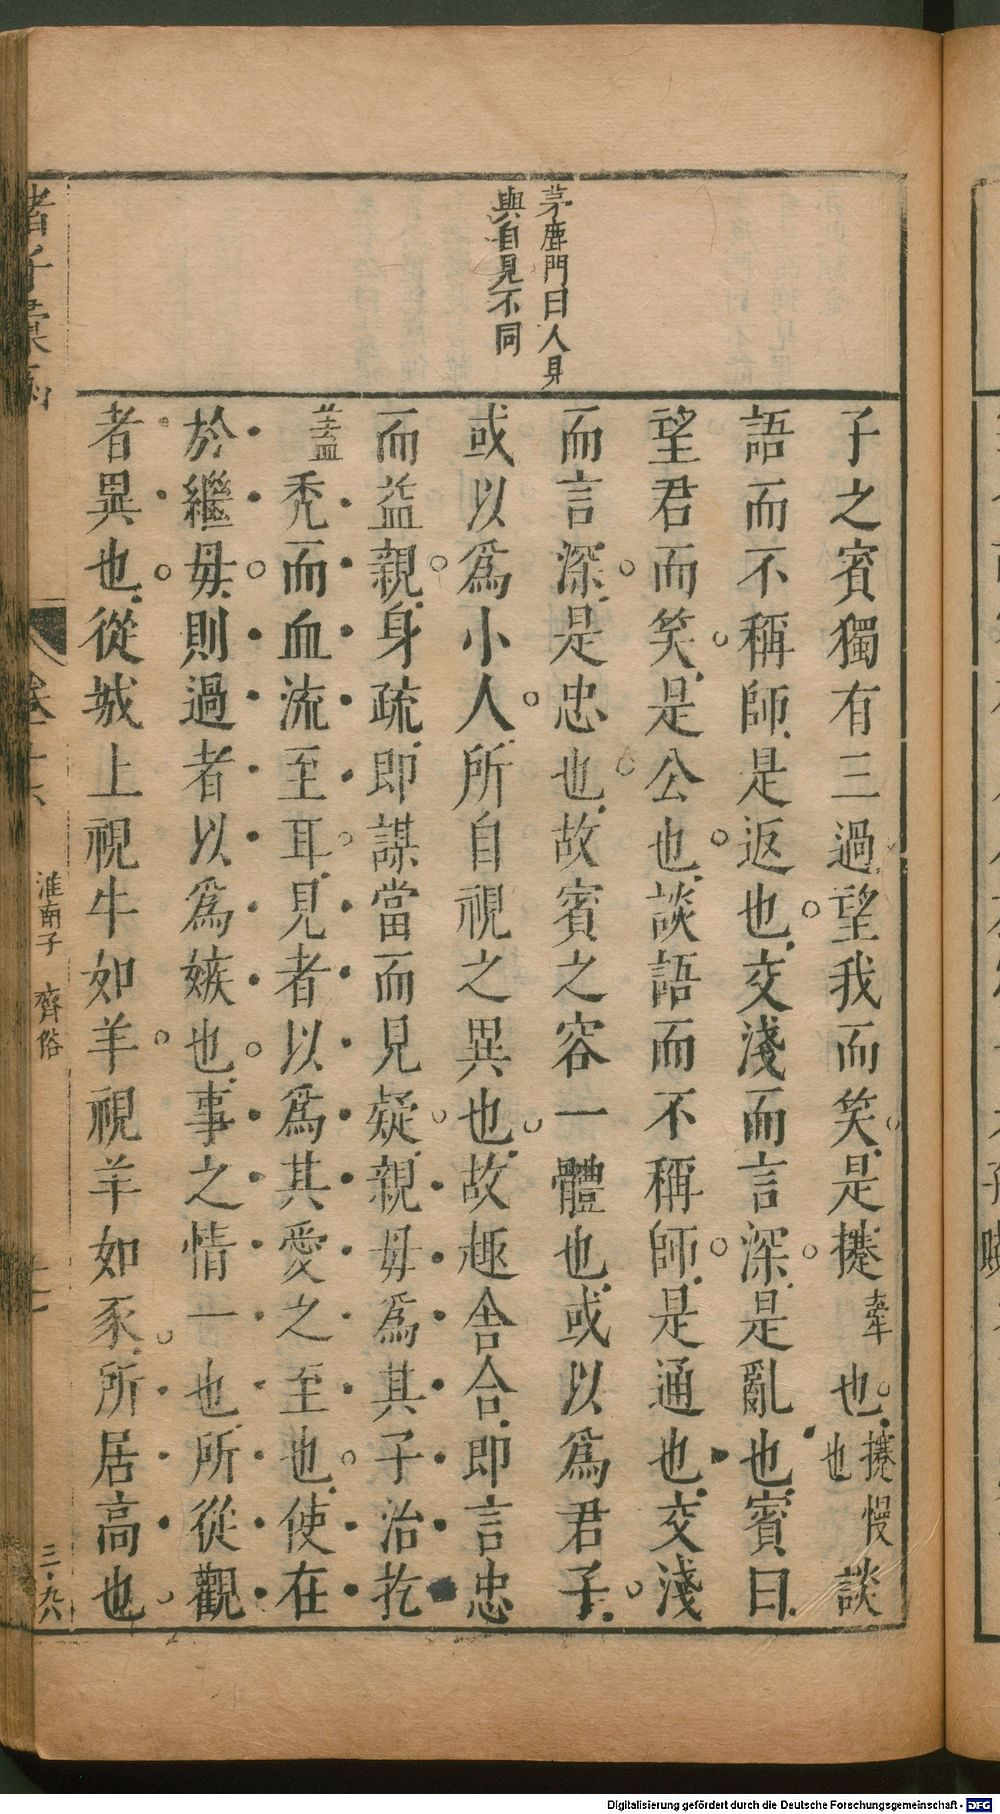 茅鹿門曰人見
與自見不同
子之賓獨有三過望我而笑是攓牽也攓慢也談
語而不稱師是返也交淺而言深是亂也賓曰
望君而笑是公也談語而不稱師是通也交淺
而言深是忠也故賓之容一體也或以爲君子
或以爲小人所自視之異也故趣舍合即言忠
而益親身疏即謀當而見疑親母爲其子治扢
蓋秃而血流至耳見者以爲其愛之至也使在
於繼母則過者以爲嫉也事之情一也所從觀
者異也從城上視牛如羊視羊如豕所居高也
諸子彙函
卷十六
淮南子 齊俗
三九六
Digitalisierung gefördert durch die Deutsche Forschungsgemeinschaft - DFG